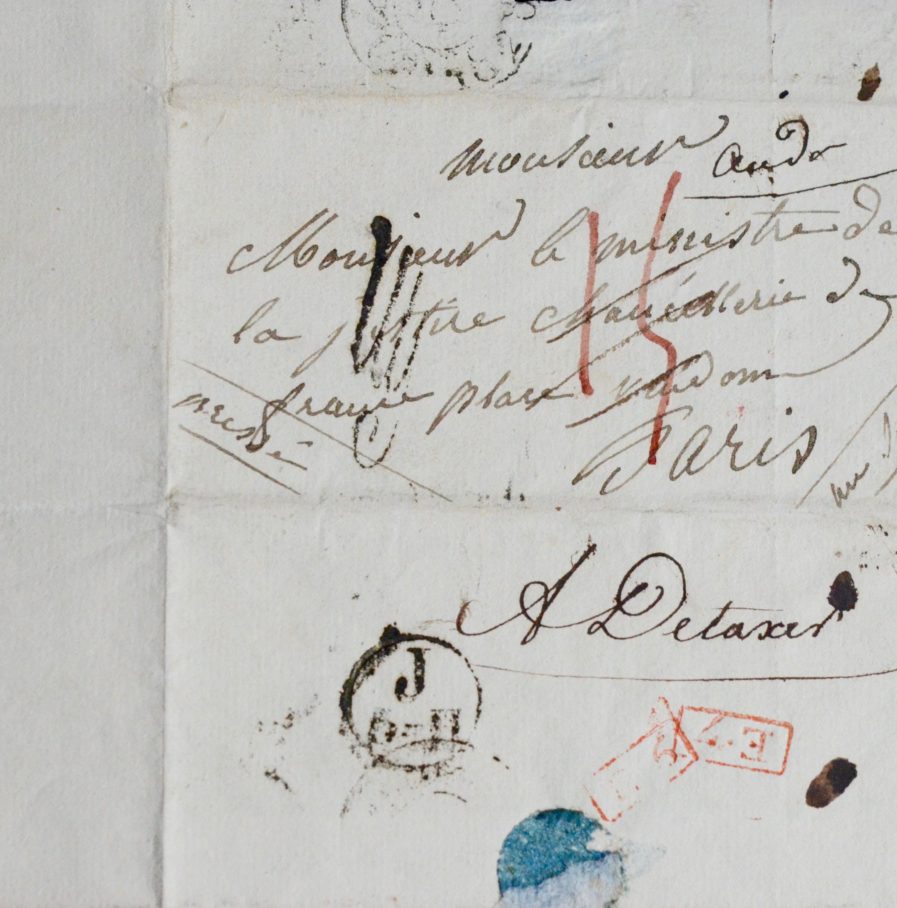 monsieur
Monsieur le ministre de
la justice chancellerie de
france place vendome
Paris
pressé
au
A Detaxer
J
4E